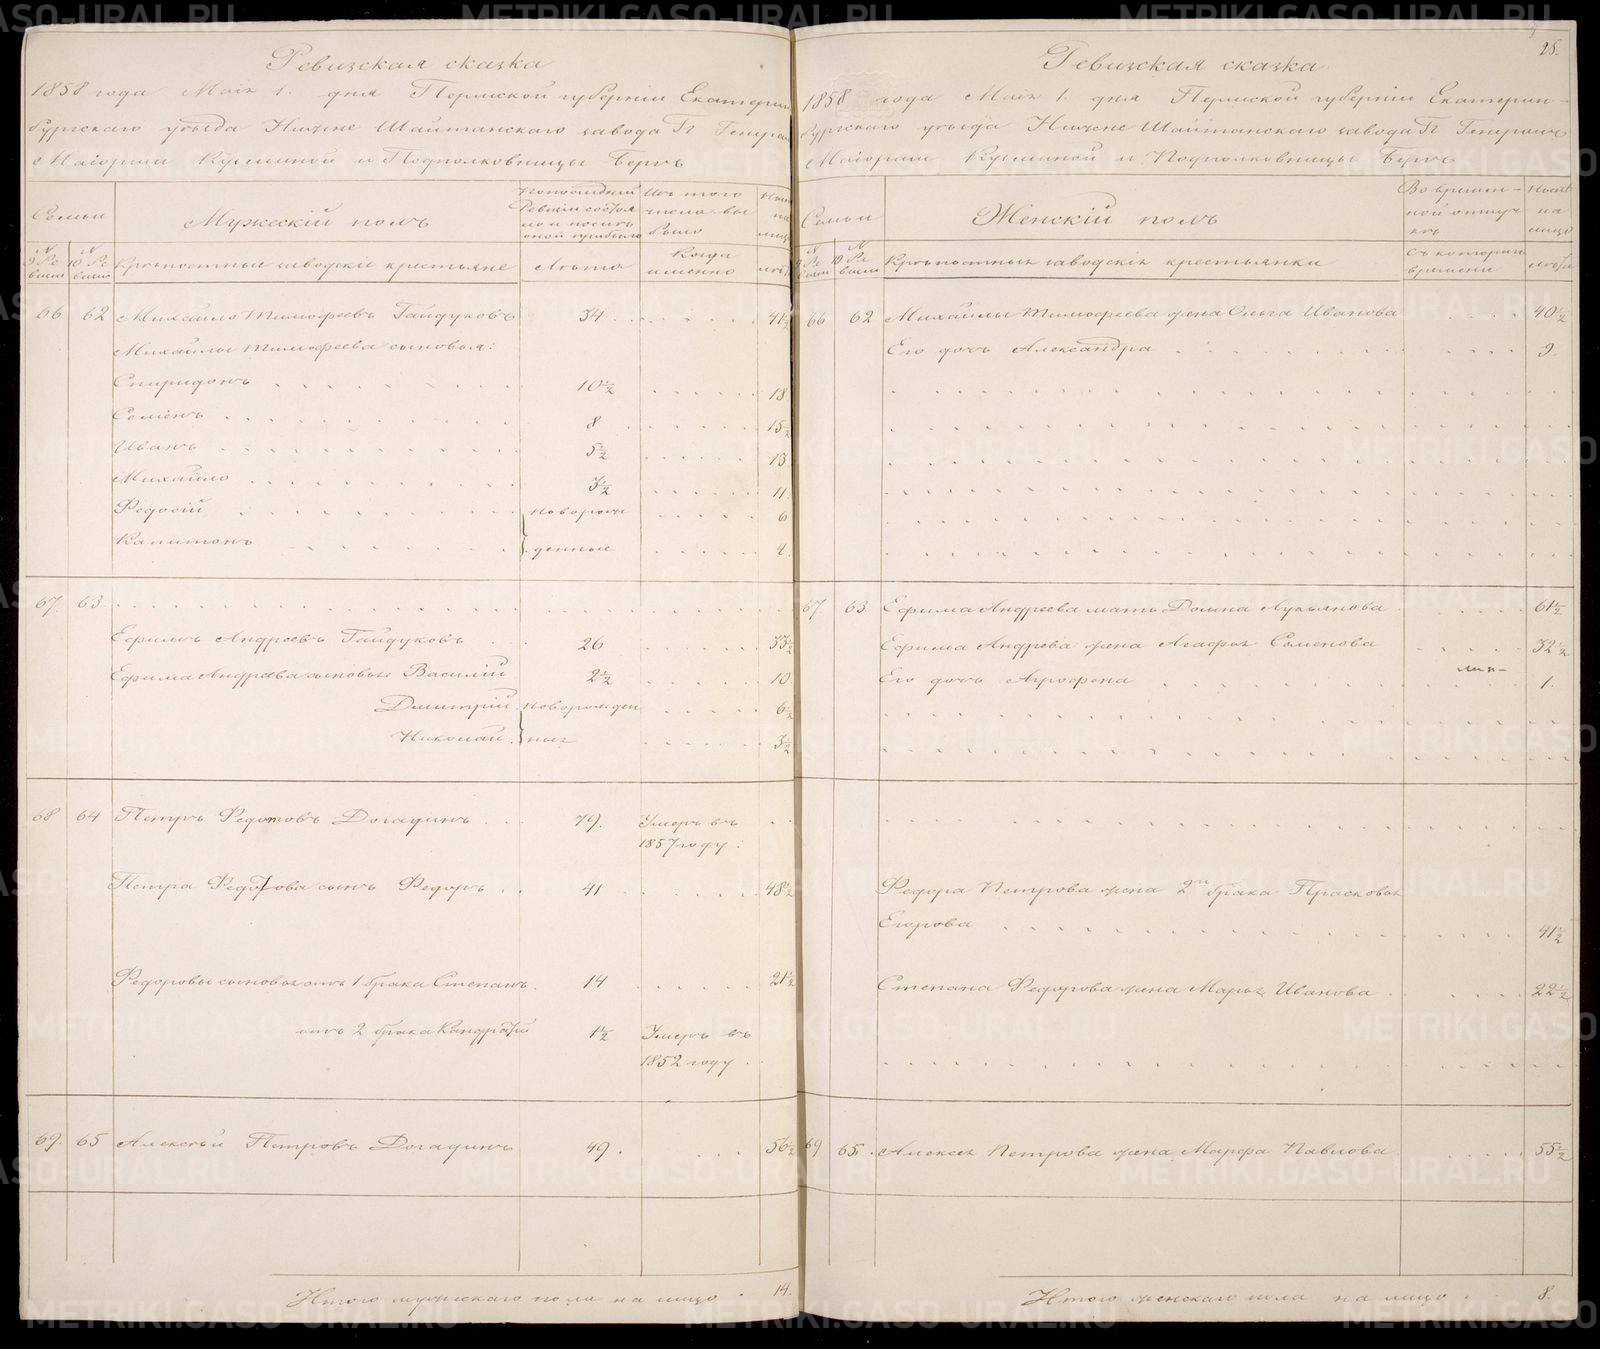 Ревизская сказка
1858 года Маія 1. дня Пермской губерніи Екатерин
бургскаго уѣзда Нижне Шайтанскаго завода Гг Генерал
Маіорши Кузминой и Подполковницы Бергъ
Семьи
Мужескій полъ
По последней Ревизіи состоя
ло и послѣ оной прибыло
Изъ того числа вы
было
Ныне на лицо
№ 9 Ре
визіи
№ 10 Ре
визіи
Крѣпостные заводскіе крестьяне
Лѣта
Когда именно
лѣта
66 62 Михайло Тимофеевъ Гайдуковъ 34 41½
Михайлы Тимофеева сыновья:
Спиридонъ 10½ 18
Семёнъ 8 15½
Иванъ 5½ 13
Михайло 3½ 11
Федосій новорож 6
Капитонъ денные 4.
67. 63.
Ефимъ Андреевъ Гайдуковъ 26 33½
Ефима Андреева сыновья Василій 2½ 10
Дмитрій новорожден 6½
Николай ныя 3½
68 64 Петръ Федотовъ Догадинъ 79. Умеръ въ
1857 году.
Петра Федотова сынъ Федоръ 41 48½
Федоровы сыновья отъ 1 брака Степанъ. 14 21½
отъ 2 брака Кандратій 1½ Умеръ въ
1852 году.
69. 65 Алексѣй Петровъ Догадинъ 49. 56½
Итого мужескаго пола на лицо 14.
25.
Ревизская сказка
1858 года Маія 1. дня Пермской губерніи Екатерин-
бургскаго уѣзда Нижне Шайтанскаго завода Гг Генералъ
Маіорши Кузминой и Подполковницы Бергъ
Семьи
Женскій полъ
Во времен-
ной отлуч
кѣ
Ныне на лицо
№ 9 Ре
визіи
№ 10 Ре
визіи
Крѣпостныя заводскія крестьянки
Съ котораго
времени
лѣта
66 62 Михайлы Тимофеева жена Ольга Иванова 40½
Его дочь Александра 9.
67. 63 Ефима Андреева мать Домна Лукьянова 61½
Ефима Андреева жена Агафья Семенова 32½
Его дочь Агрофена 1.
Федора Петрова жена 2го брака Прасковья
Егорова 41½
Степана Федорова жена Марья Иванова 22½
69 65. Алексея Петрова жена Марфа Павлова 55½
Итого женскаго пола на лицо 8.
METRIKI.GASO-URAL.RU